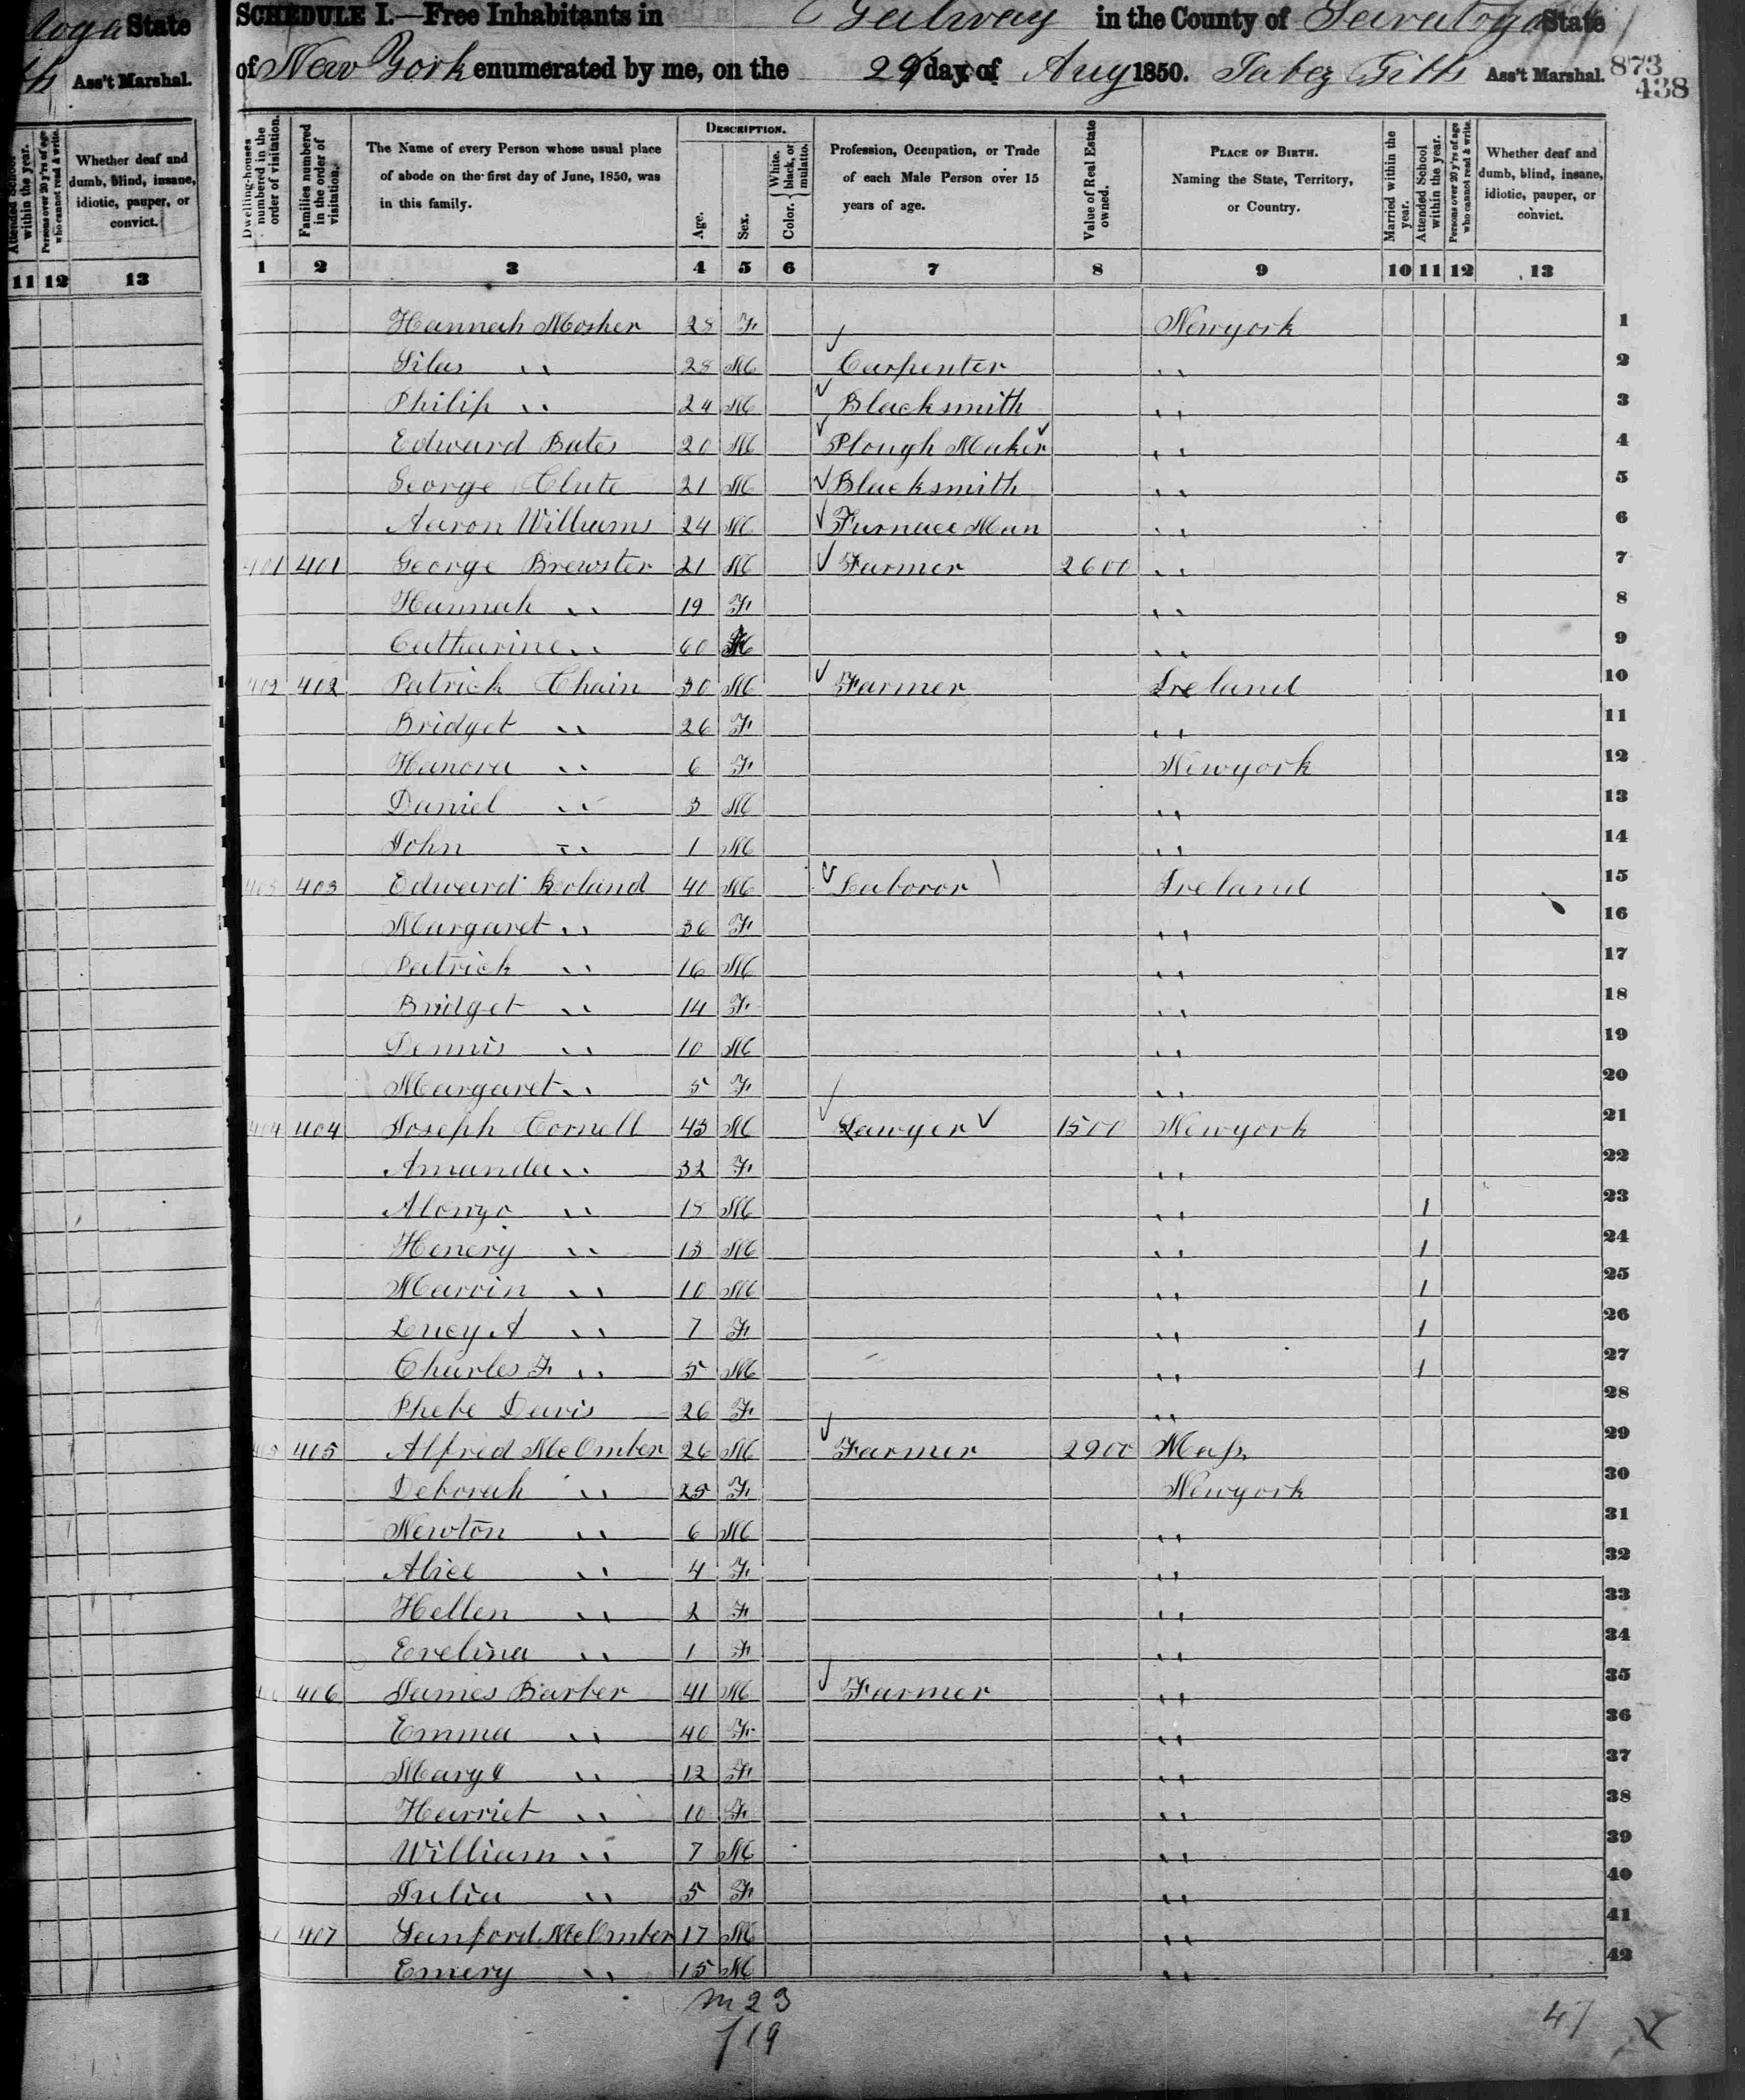 toga State
th Ass't Marshal.
Attended School within the year.
Persons over 20 y'rs of age who cannot read & write.
Whether deaf and dumb, blind, insane, idiotic, pauper, or convict.
11 12 13
SCHEDULE I.—Free Inhabitants in Galway in the County of Saratoga State
of New York enumerated by me, on the 29 day of Aug 1850. Jabez Ass't Marshal.
873
438
Dwelling-houses numbered in the order of visitation.
Families numbered in the order of visitation.
The Name of every Person whose usual place of abode on the first day of June, 1850, was in this family.
DESCRIPTION.
Age.
Sex.
Color. { White, black, or mulatto.
Profession, Occupation, or Trade of each Male Person over 15 years of age.
Value of Real Estate owned.
PLACE OF BIRTH. Naming the State, Territory, or Country.
Married within the year.
Attended School within the year.
Persons over 20 y'rs of age who cannot read & write.
Whether deaf and dumb, blind, insane, idiotic, pauper, or convict.
1 2 3 4 5 6 7 8 9 10 11 12 13
Hannah Mosher 28 F Newyork 1
Silas " 28 M Carpenter " 2
Philip " 24 M Blacksmith " 3
Edward Bates 20 M Plough Maker " 4
George Clute 21 M Blacksmith " 5
Aaron Williams 24 M Furnace Man " 6
401 401 George Brewster 21 M Farmer 2600 " 7
Hannah " 19 F " 8
Catharine " 60 " 9
402 402 Patrick Chain 30 M Farmer Ireland 10
Bridget " 26 F " 11
Hanora " 6 F Newyork 12
Daniel " 3 M " 13
John " 1 M " 14
403 403 Edward Boland 40 M Laboror Ireland 15
Margaret " 36 F " 16
Patrick " 16 M " 17
Bridget " 14 F " 18
Dennis " 10 M " 19
Margaret " 5 F " 20
404 404 Joseph Cornell 43 M Lawyer 1500 Newyork 21
Amanda " 32 F " 22
Alonzo " 18 M " 1 23
Henery " 13 M " 1 24
Marvin " 10 M " 1 25
Lucy A " 7 F " 1 26
Charles F " 5 M " 1 27
Phebe Davis 26 F " 28
405 405 Alfred McOmber 26 M Farmer 2900 Mass 29
Deborah " 25 F Newyork 30
Newton " 6 M " 31
Alice " 4 F " 32
Hellen " 2 F " 33
Evelina " 1 F " 34
406 James Barber 41 M Farmer " 35
Emma " 40 F " 36
Mary C " 12 F " 37
Harriet " 10 F " 38
William " 7 M " 39
Julia " 5 F " 40
407 Sanford McOmber 17 M " 41
Emery " 15 M " 42
m 23
f 19
47